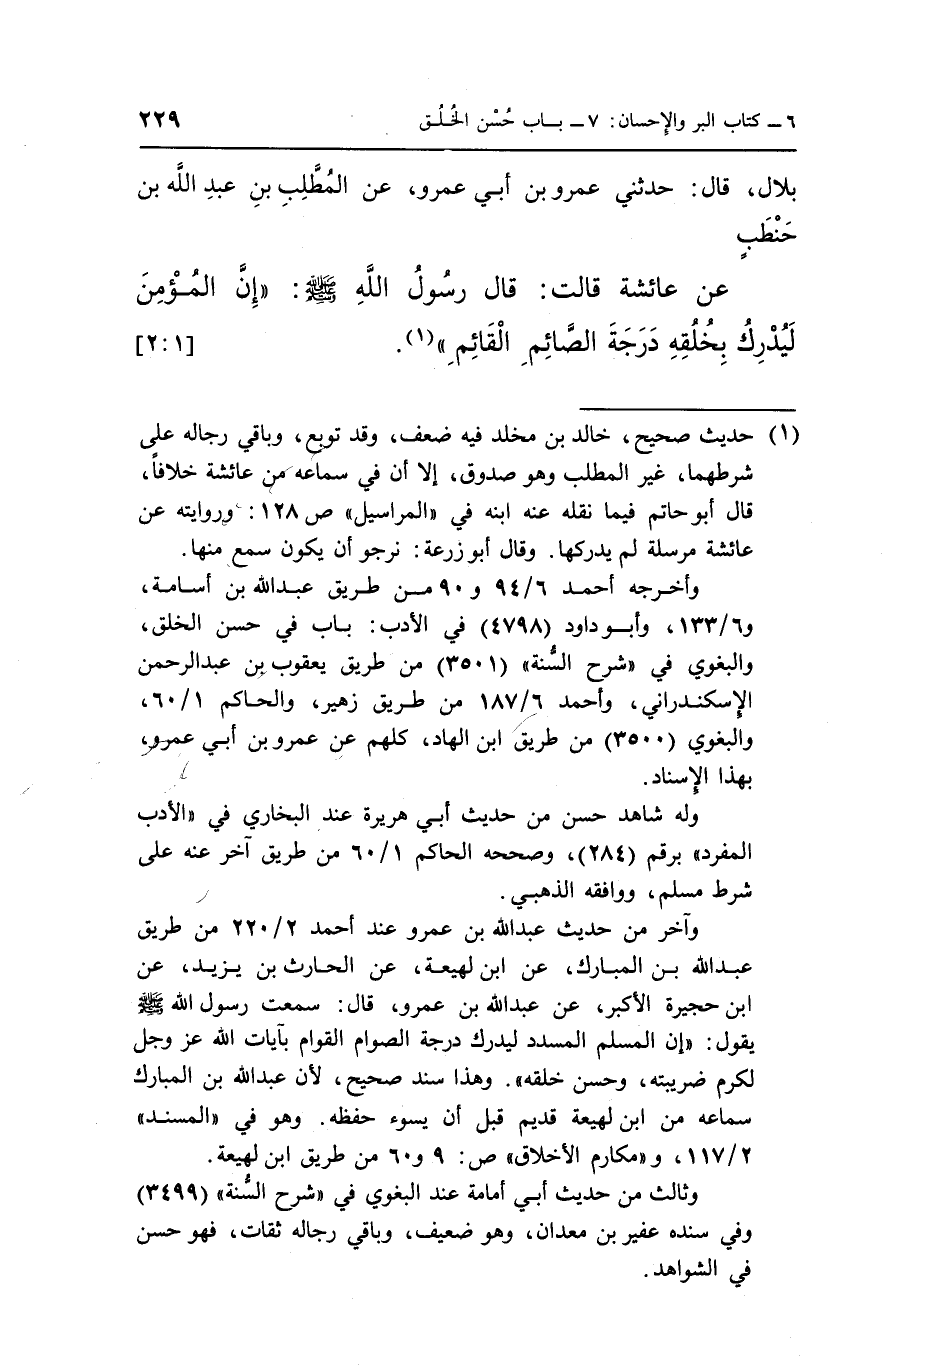 ٦ ـ كتاب البر والإحسان: ٧ ـ بـاب حُسْن الخُلُـق ٢٢٩
بلال، قال: حدثني عمرو بن أبي عمرو، عن المُطَّلِبِ بنِ عبدِ اللَّه بن
حَنْطَبٍ
عن عائشة قالت: قال رسُولُ اللَّهِ ﷺ: «إِنَّ المُـؤْمِنَ
لَيُدْرِكُ بِخُلُقِهِ دَرَجَةَ الصَّائِمِ الْقَائِمِ»(١). [٢:١]
(١) حديث صحيح، خالد بن مخلد فيه ضعف، وقد توبع، وباقي رجاله على
شرطهما، غير المطلب وهو صدوق، إلا أن في سماعه من عائشة خلافاً،
قال أبو حاتم فيما نقله عنه ابنه في «المراسيل» ص ١٢٨: وروايته عن
عائشة مرسلة لم يدركها. وقال أبو زرعة: نرجو أن يكون سمع منها.
وأخـرجه أحمـد ٩٤/٦ و ٩٠ مـن طـريق عبـدالله بن أسـامـة،
و١٣٣/٦، وأبـو داود (٤٧٩٨) في الأدب: بـاب في حسن الخلق،
والبغوي في «شرح السُّنة» (٣٥٠١) من طريق يعقوب بن عبدالرحمن
الإسكنـدراني، وأحمد ١٨٧/٦ من طـريق زهير، والحـاكم ٦٠/١،
والبغوي (٣٥٠٠) من طريق ابن الهاد، كلهم عن عمرو بن أبي عمرو،
بهذا الإسناد.
وله شاهد حسن من حديث أبي هريرة عند البخاري في «الأدب
المفرد» برقم (٢٨٤)، وصححه الحاكم ٦٠/١ من طريق آخر عنه على
شرط مسلم، ووافقه الذهبي.
وآخر من حديث عبدالله بن عمرو عند أحمد ٢٢٠/٢ من طريق
عبـدالله بـن المبـارك، عن ابن لهيعة، عن الحارث بن يـزيـد، عن
ابن حجيرة الأكبر، عن عبدالله بن عمرو، قال: سمعت رسول الله ﷺ
يقول: «إن المسلم المسدد ليدرك درجة الصوام القوام بآيات الله عز وجل
لكرم ضريبته، وحسن خلقه». وهذا سند صحيح، لأن عبدالله بن المبارك
سماعه من ابن لهيعة قديم قبل أن يسوء حفظه. وهو في «المسند»
١١٧/٢، و«مكارم الأخلاق» ص: ٩ و٦٠ من طريق ابن لهيعة.
وثالث من حديث أبي أمامة عند البغوي في «شرح السُّنة» (٣٤٩٩)
وفي سنده عفير بن معدان، وهو ضعيف، وباقي رجاله ثقات، فهو حسن
في الشواهد.